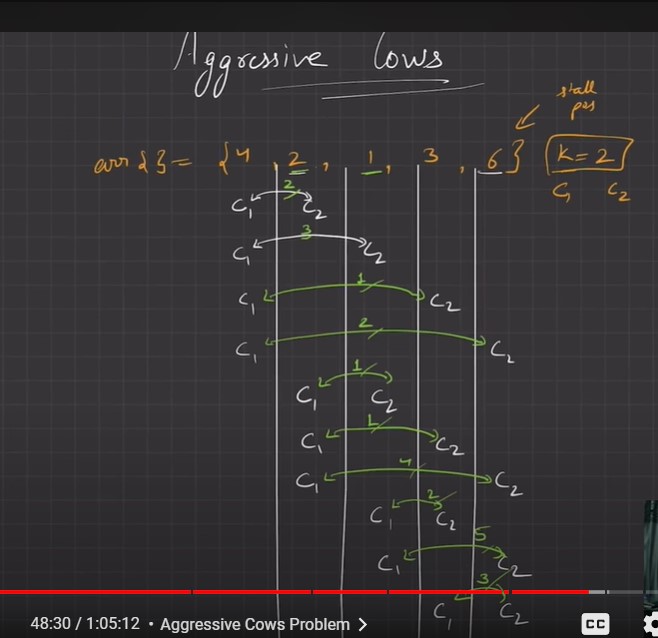 Aggressive Cows
stall
pos
arr { } = { 4 , 2 , 1 , 3 , 6 } K = 2
C1 C2
C1 2 C2
C1 3 C2
C1 1 C2
C1 2 C2
C1 1 C2
C1 1 C2
C1 4 C2
C1 2 C2
C1 5 C2
C1 3 C2
48:30 / 1:05:12 • Aggressive Cows Problem >
CC